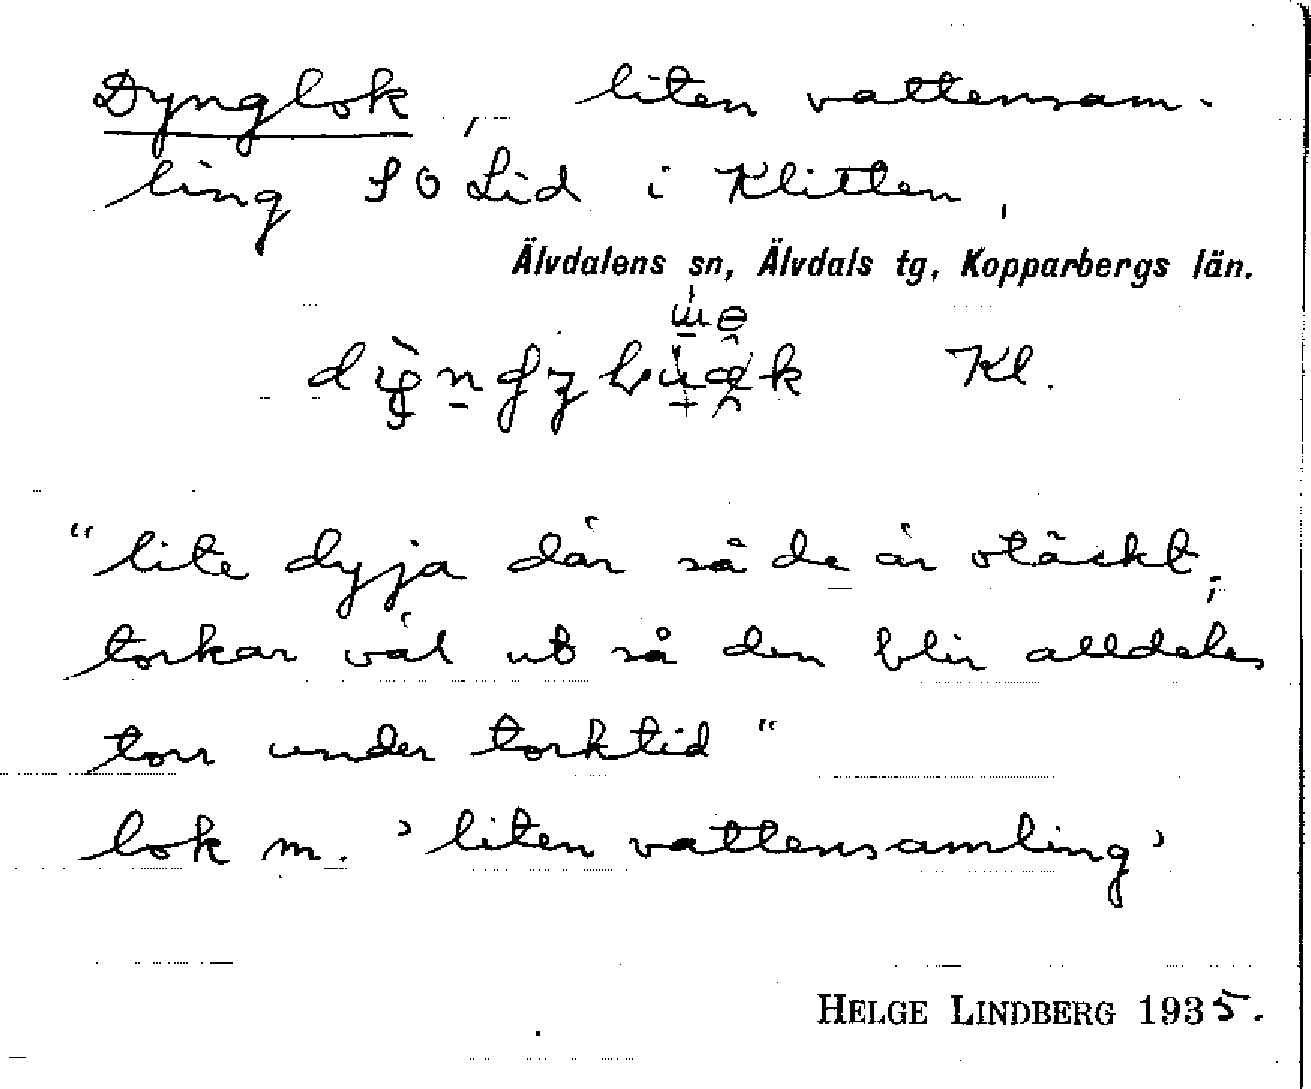 Dynglok, liten vattensam-
ling SO Lid i Klitten,
Älvdalens sn, Älvdals tg, Kopparbergs län.
Kl.
"lite dyja där så de är otäckt,
torkar väl ut så den blir alldeles
torr under torktid"
lok m. 'liten vattensamling'
HELGE LINDBERG 1935.